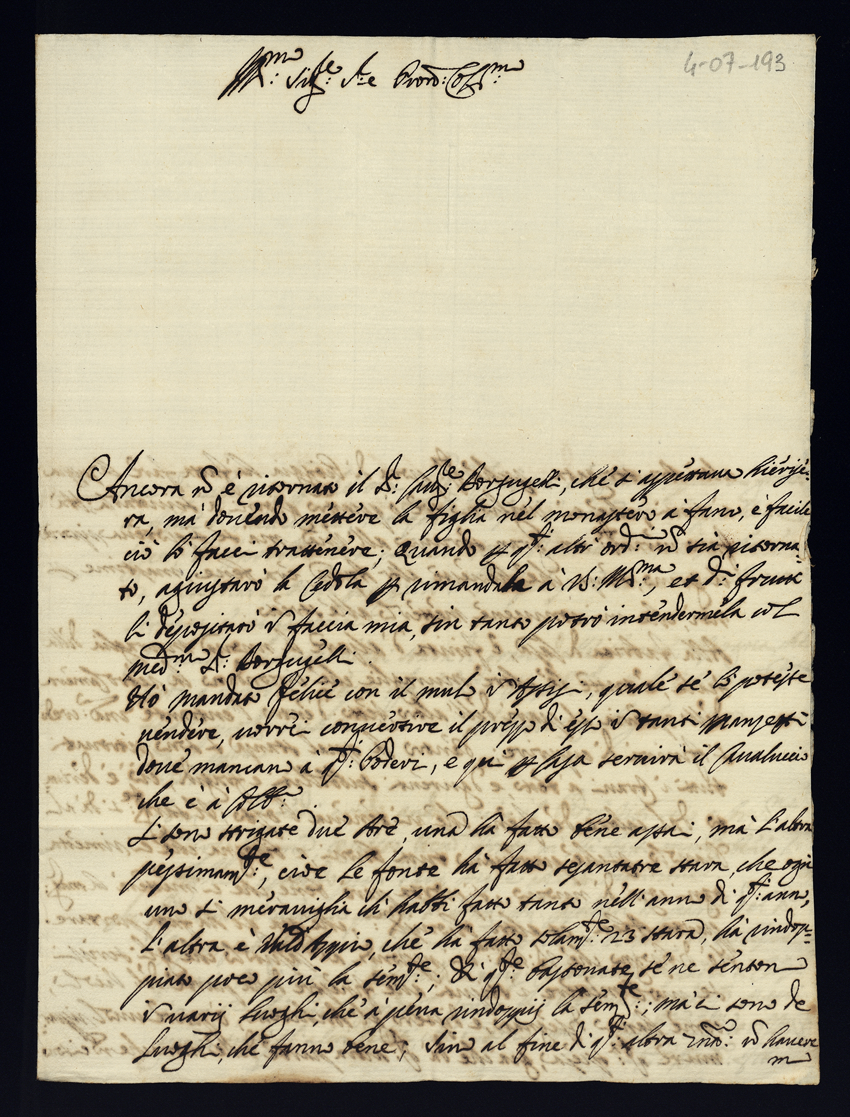 4-07-193
Ill.mo Sig.re S.re e Pron: Col.mo
Ancora nõ è ritornato il S.r Cav.re Berzugelli, che s'aspettava hierse-
ra, mà dovendo mettere la figlia nel monastero à fano, è facile
ciò lo facci trattenere; Quando p q.o altr'ord.o nõ sia ritorna-
to, aggiustarò la Cedola p rimandarla à V.S. Ill.ma, et d.i frutti
li depositarò in faccia mia, sin tanto potrò intendermela col
med.mo S.r Berzugelli.
Hò mandato Felice con il mulo in Assisi, quale se lo potesse
vendere, vorrei convertire il prezzo di esso in tanti
dove mancano à q.i Poderi, e qui p Casa servirà il Cavalluccio
che è à
Si sono strigate due Are, una hà fatto bene assai, mà l'altra
pessimam.te, cioè le fonte hà fatto sessantatre stara, che ogn'
uno si meraviglia ch'habbi fatto tanto nell'anno di q.o anno,
l'altra è, che hà fatto solam.te 23 stara, hà rindop-
piato poco più la sem.te; di q.te bastonate se ne sentono
in varij luoghi, che à pena rindoppij la sem.te; mà ci sono de
luoghi, che fanno bene; Sino al fine di q.o altra nõ havere
m